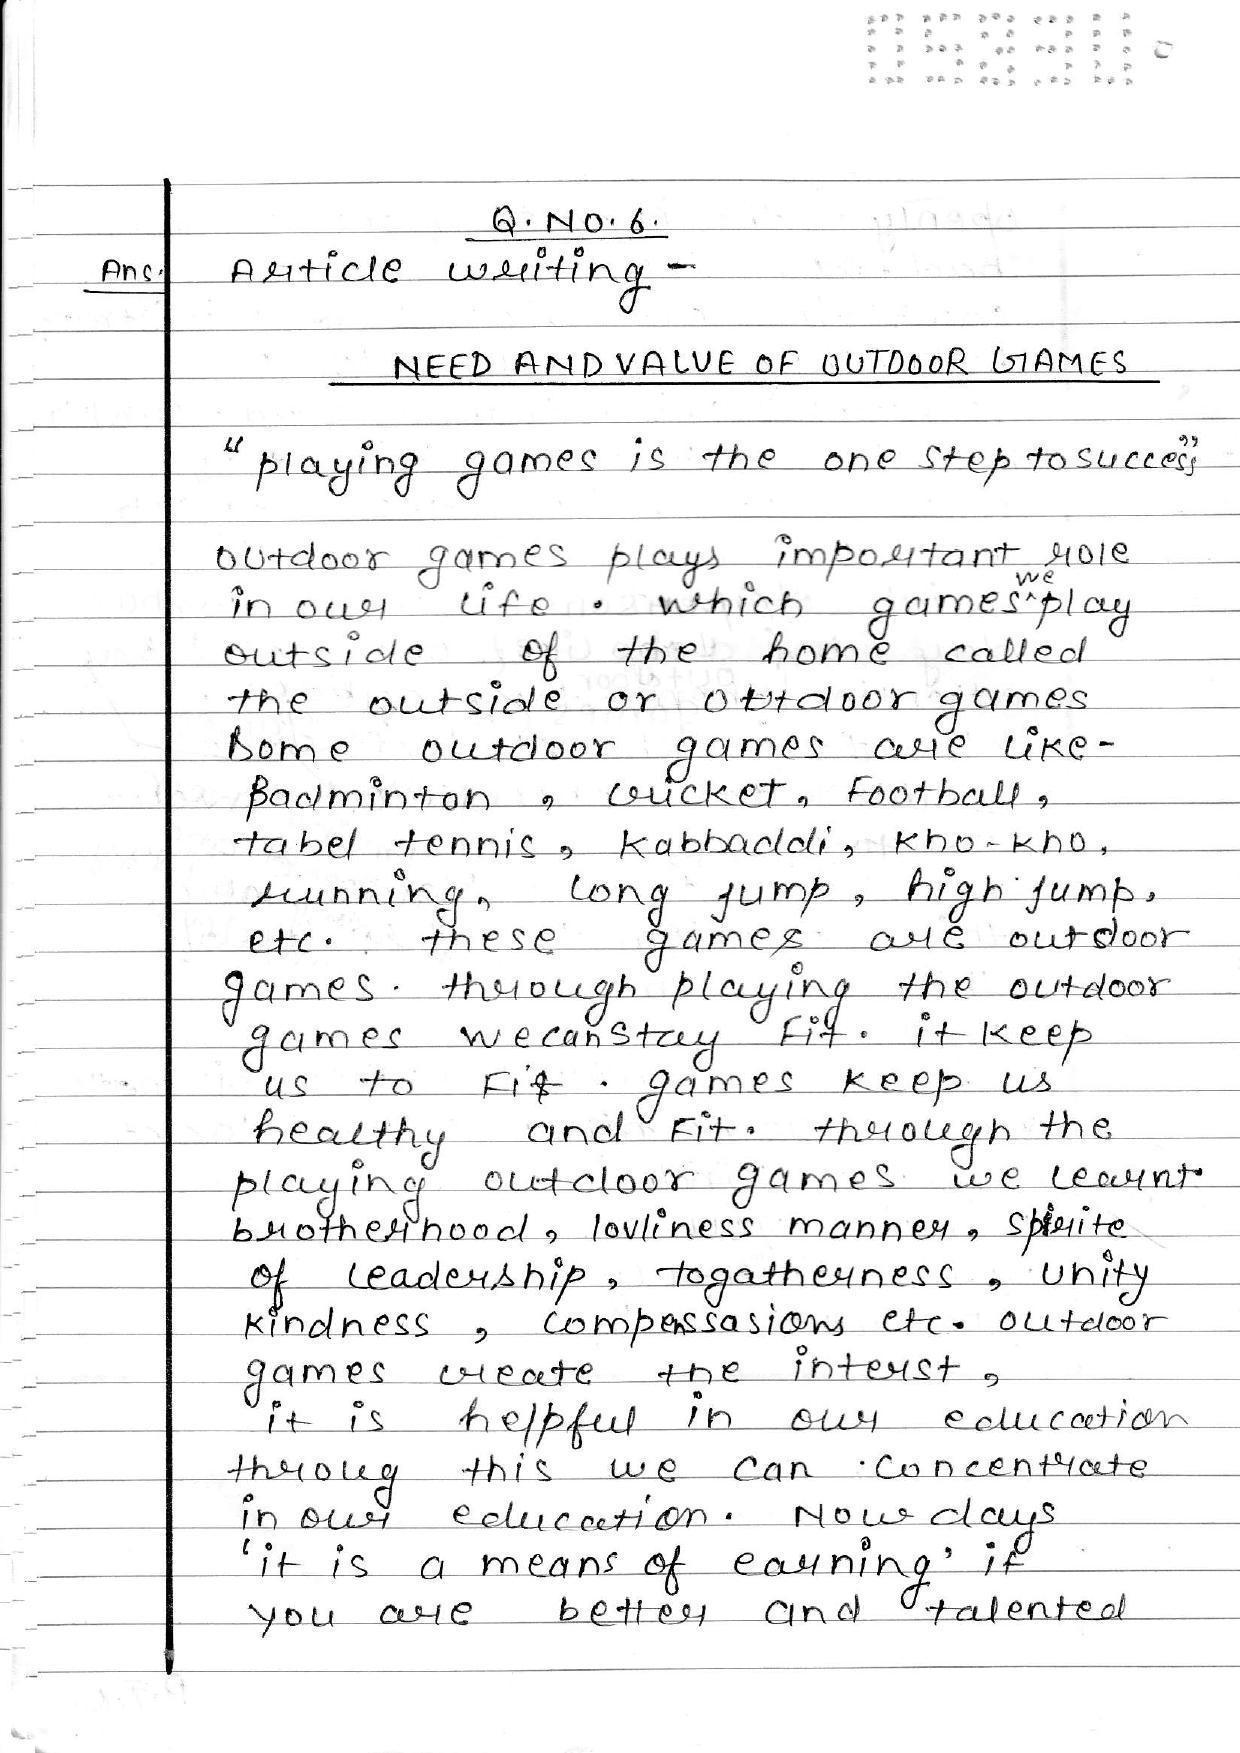 Q. No. 6.
Ans. Article writing -
NEED AND VALUE OF OUTDOOR GAMES
"playing games is the one step to success"
outdoor games plays important role
in our life. which games we play
outside of the home called
the outside or outdoor games
Some outdoor games are like -
Badminton, cricket, Football,
tabel tennis, kabbaddi, kho-kho,
running, long jump, high jump,
etc. these games are outdoor
games. through playing the outdoor
games we can stay Fit. it keep
us to Fit. games keep us
healthy and Fit. through the
playing outdoor games we learnt
brotherhood, lovliness manner, spirite
of leadership, togatherness, unity
kindness, compenssasions etc. outdoor
games create the interst,
it is helpful in our education
throug this we can concentrate
in our education. Now days
'it is a means of earning' if
you are better and talented